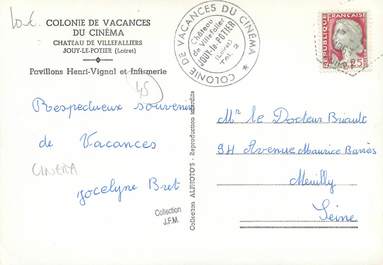 Lot
COLONIE DE VACANCES
DU CINÉMA
CHATEAU DE VILLEFALLIERS
JOUY-LE-POTIER (Loiret)
Pavillons Henri-Vignal et Infirmerie
45
Respectueux souvenirs
de Vacances
CINEMA
Jocelyne Bret
Collection
J.F.M.
Collection ALPHOTO'S - Reproduction interdite
COLONIE DE VACANCES DU CINÉMA
Château
de Villefallier
JOUY-le-POTIER
Tél. 2
RÉPUBLIQUE FRANÇAISE
0,25
Mr le Docteur Briault
94 Avenue Maurice Barrès
Neuilly
Seine